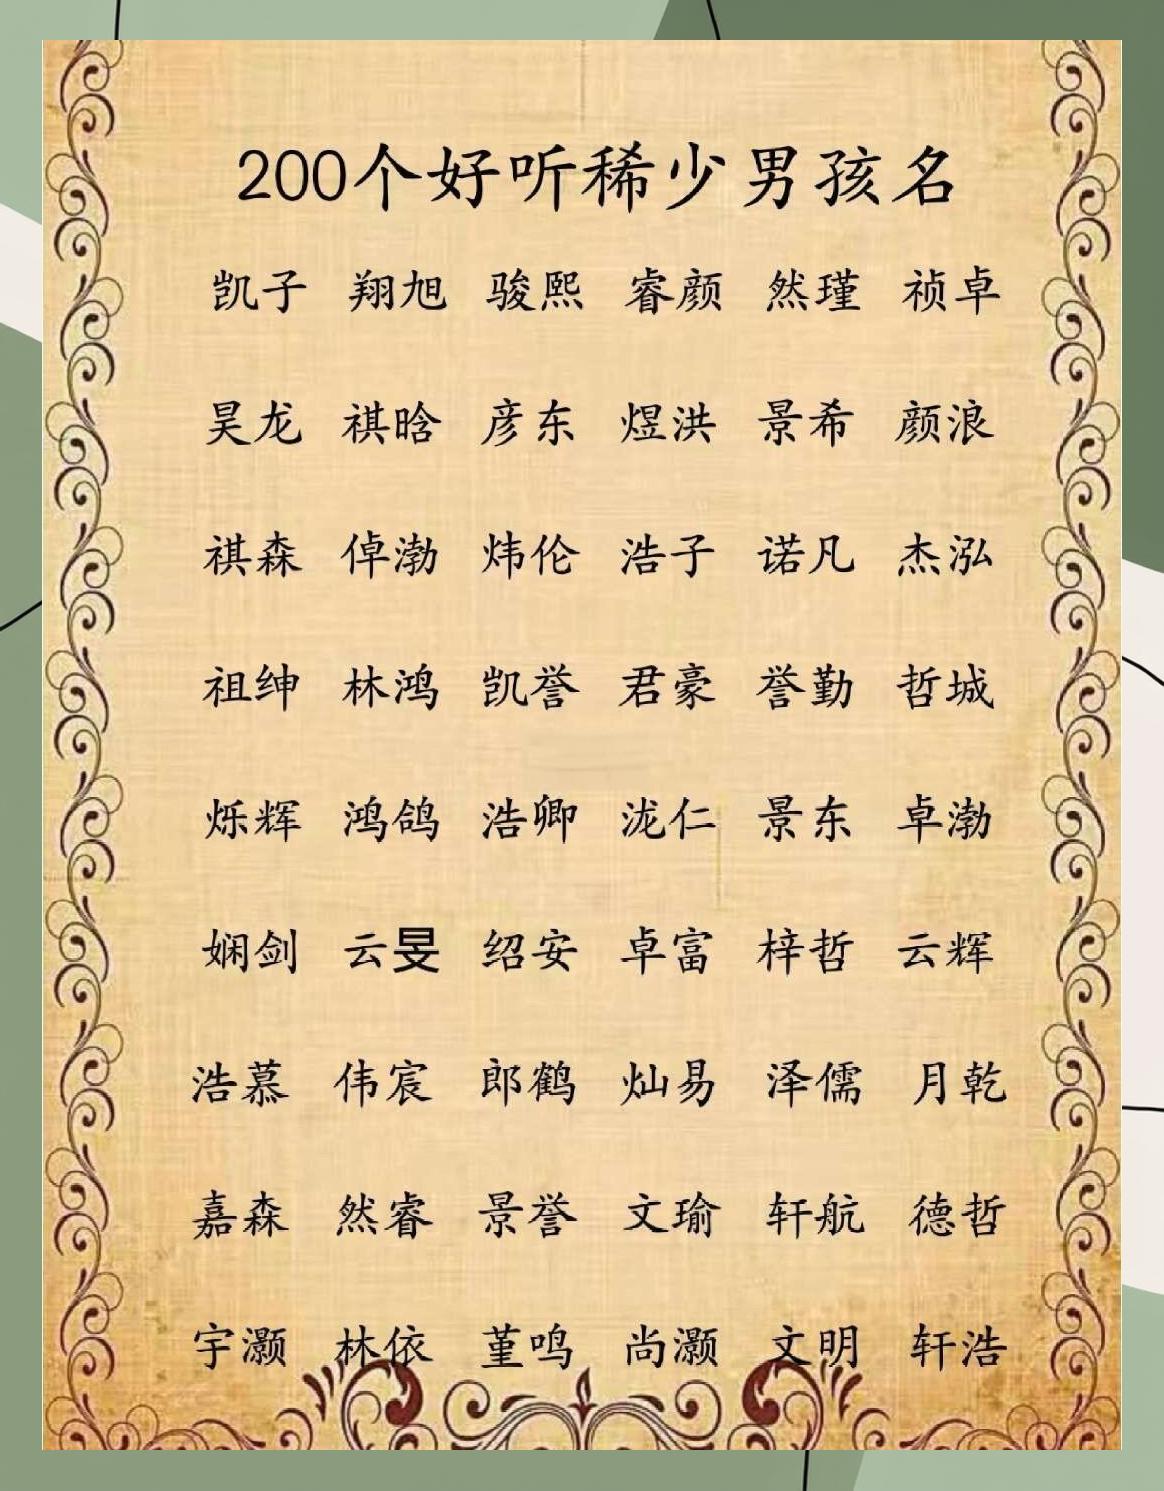 200个好听稀少男孩名
凯子 翔旭 骏熙 睿颜 然瑾 祯卓
昊龙 祺晗 彦东 煜洪 景希 颜浪
祺森 倬渤 炜伦 浩子 诺凡 杰泓
祖绅 林鸿 凯誉 君豪 誉勤 哲城
烁辉 鸿鸽 浩卿 泷仁 景东 卓渤
娴剑 云旻 绍安 卓富 梓哲 云辉
浩慕 伟宸 郎鹤 灿易 泽儒 月乾
嘉森 然睿 景誉 文瑜 轩航 德哲
宇灏 林依 堇鸣 尚灏 文明 轩浩